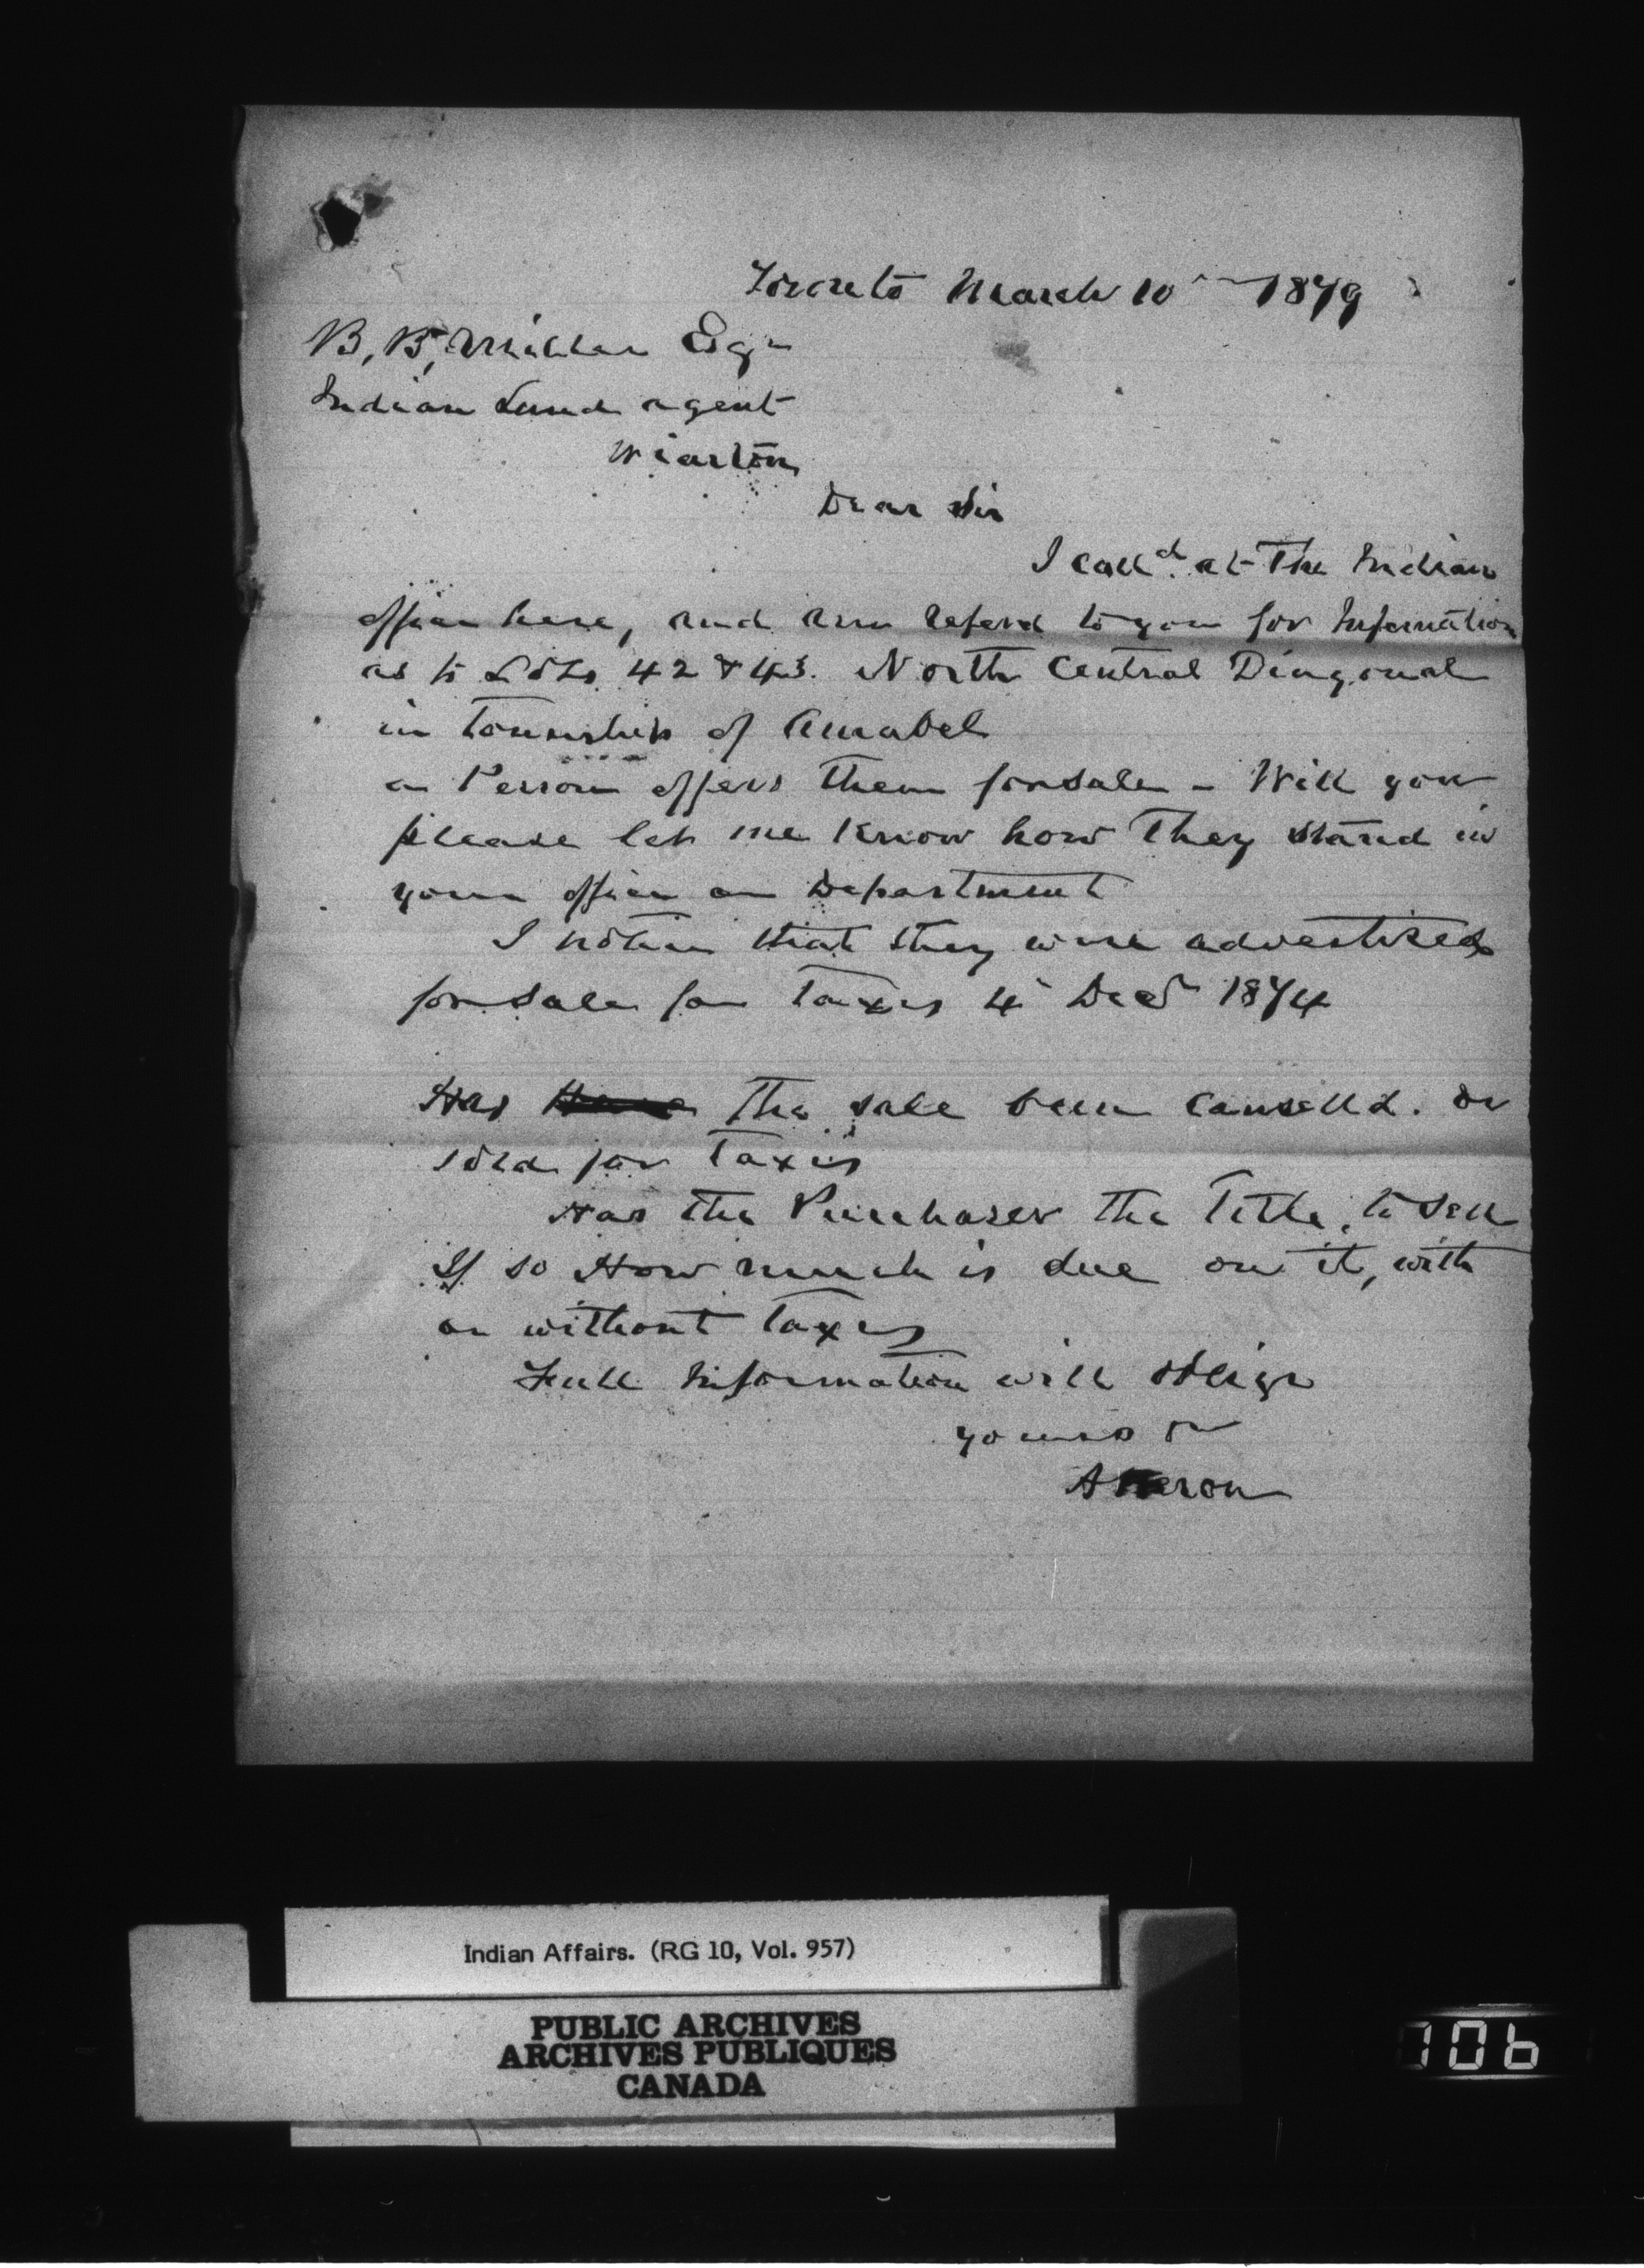 Toronto March 10 1879
B. B. Miller Esqr
Indian Land agent
Wiarton
Dear Sir
I calld. at The Indian
office here, and am referd to you for Information
as to Lots 42 & 43. North Central Diagonal
in Township of Amabel
a Person offers them for sale - Will you
please let me know how They stand in
your office or Department
I notice that they were advertised
for sale for Taxes 4 Decr 1874
Has the sale been canselld. or
sold for Taxes
Has the Purchaser the Title, to sell
If so How much is due on it, with
or without Taxes
Full Information will oblige
yours
Indian Affairs. (RG 10, Vol. 957)
PUBLIC ARCHIVES
ARCHIVES PUBLIQUES
CANADA
706